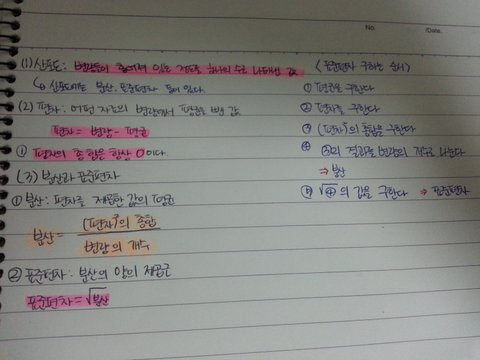 No.
/Date.
(1) 산포도: 변량들이 흩어져 있는 정도를 하나의 수로 나타낸 값
(↳ 산포도에는 분산, 표준편차 등이 있다.
(2) 편차: 어떤 자료의 변량에서 평균을 뺀 값
편차 = 변량 - 평균
① 편차의 총합은 항상 0이다.
(3) 분산과 표준편차
① 분산: 편차를 제곱한 값의 평균
분산 = (편차)²의 총합 / 변량의 개수
② 표준편차: 분산의 양의 제곱근
표준편차 = √분산
〈표준편차 구하는 순서〉
① 평균을 구한다
② 편차를 구한다
③ (편차)²의 총합을 구한다
④ ③의 결과를 변량의 개수로 나눈다
⇒ 분산
⑤ √④의 값을 구한다 ⇒ 표준편차